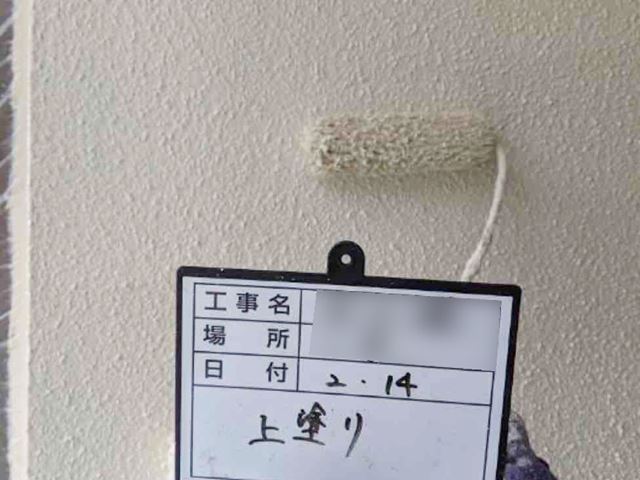 工事名
場所
日付 2・14
上塗り